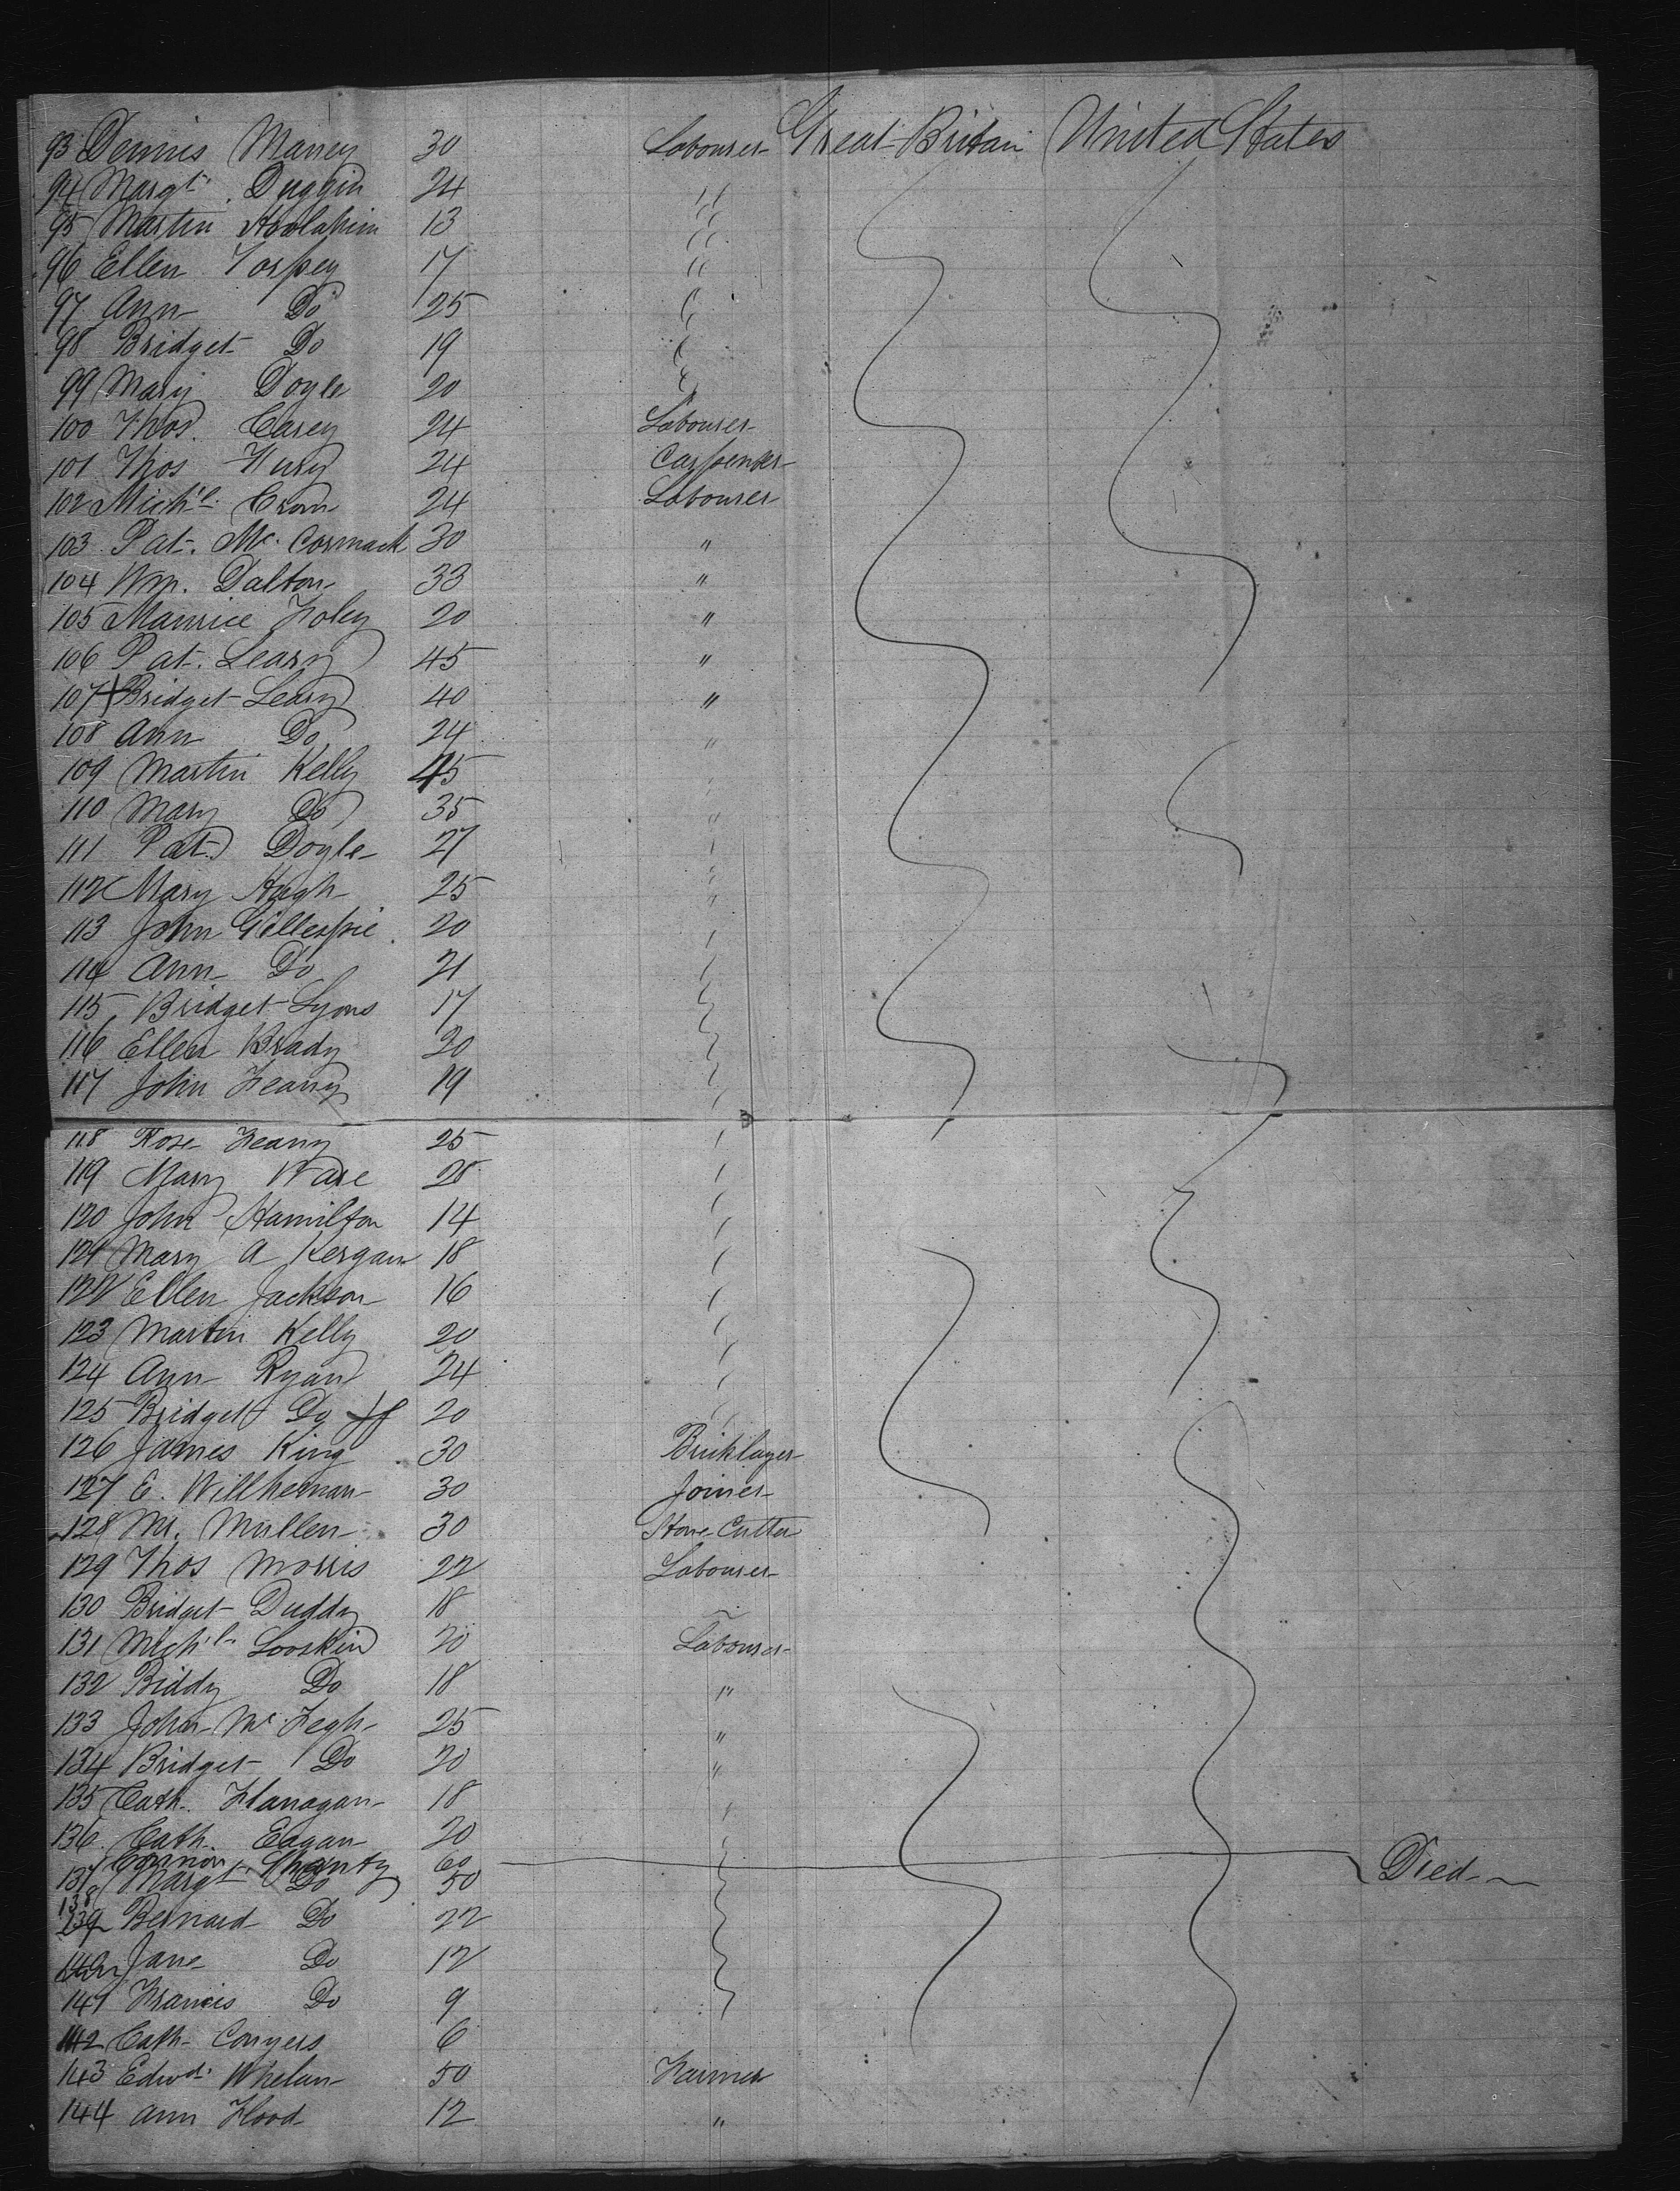 93 Dennis Maney 30 Labourer Great Britain United States
94 Margt. Duggin 24 "
95 Martin 13 "
96 Ellen Torpey 17 "
97 Ann Do 25 "
98 Bridget Do 19 "
99 Mary Doyle 20 "
100 Thos. Carey 24 Labourer
101 Thos Fury 24 Carpenter
102 Mich'l. 24 Labourer
103 Pat. Mc. Cormack 30 "
104 Wm. Dalton 33 "
105 Maurice Foley 20 "
106 Pat. Leary 45 "
107 + Bridget Leary 40 "
108 Ann Do 24 "
109 Martin Kelly 45 "
110 Mary Do 35 "
111 Pat Doyle 27 "
112 Mary Hugh 25 "
113 John Gillespie 20
114 Ann Do 21
115 Bridget Lyons 17
116 Ellen Brady 20
117 John Feany 19
118 Rose Feany 25
119 Mary Ware 28
120 John Hamilton 14
121 Mary A Kergan 18
122 Ellen Jackson 16
123 Martin Kelly 20
124 Ann Ryan 24
125 Bridget Do 20
126 James King 30 Bricklayer
127 E. Willhernan 30 Joiner
128 M. Mullen 30 Stone Cutter
129 Thos Morris 22 Labourer
130 Bridget Duddy 18
131 Mich'l. Looskin 20 Labourer
132 Biddy Do 18 "
133 John Mc Fegh 25 "
134 Bridget Do 20 "
135 Cath. Flanagan 18
136 Cath. Eagan 20
137 Shanty 60 Died
138 Margt Do 50
139 Bernard Do 22
140 Jane Do 12
141 Francis Do 9
142 Cath Conyers 6
143 Edwd. Whelan 50 Farmer
144 Ann Flood 12 "